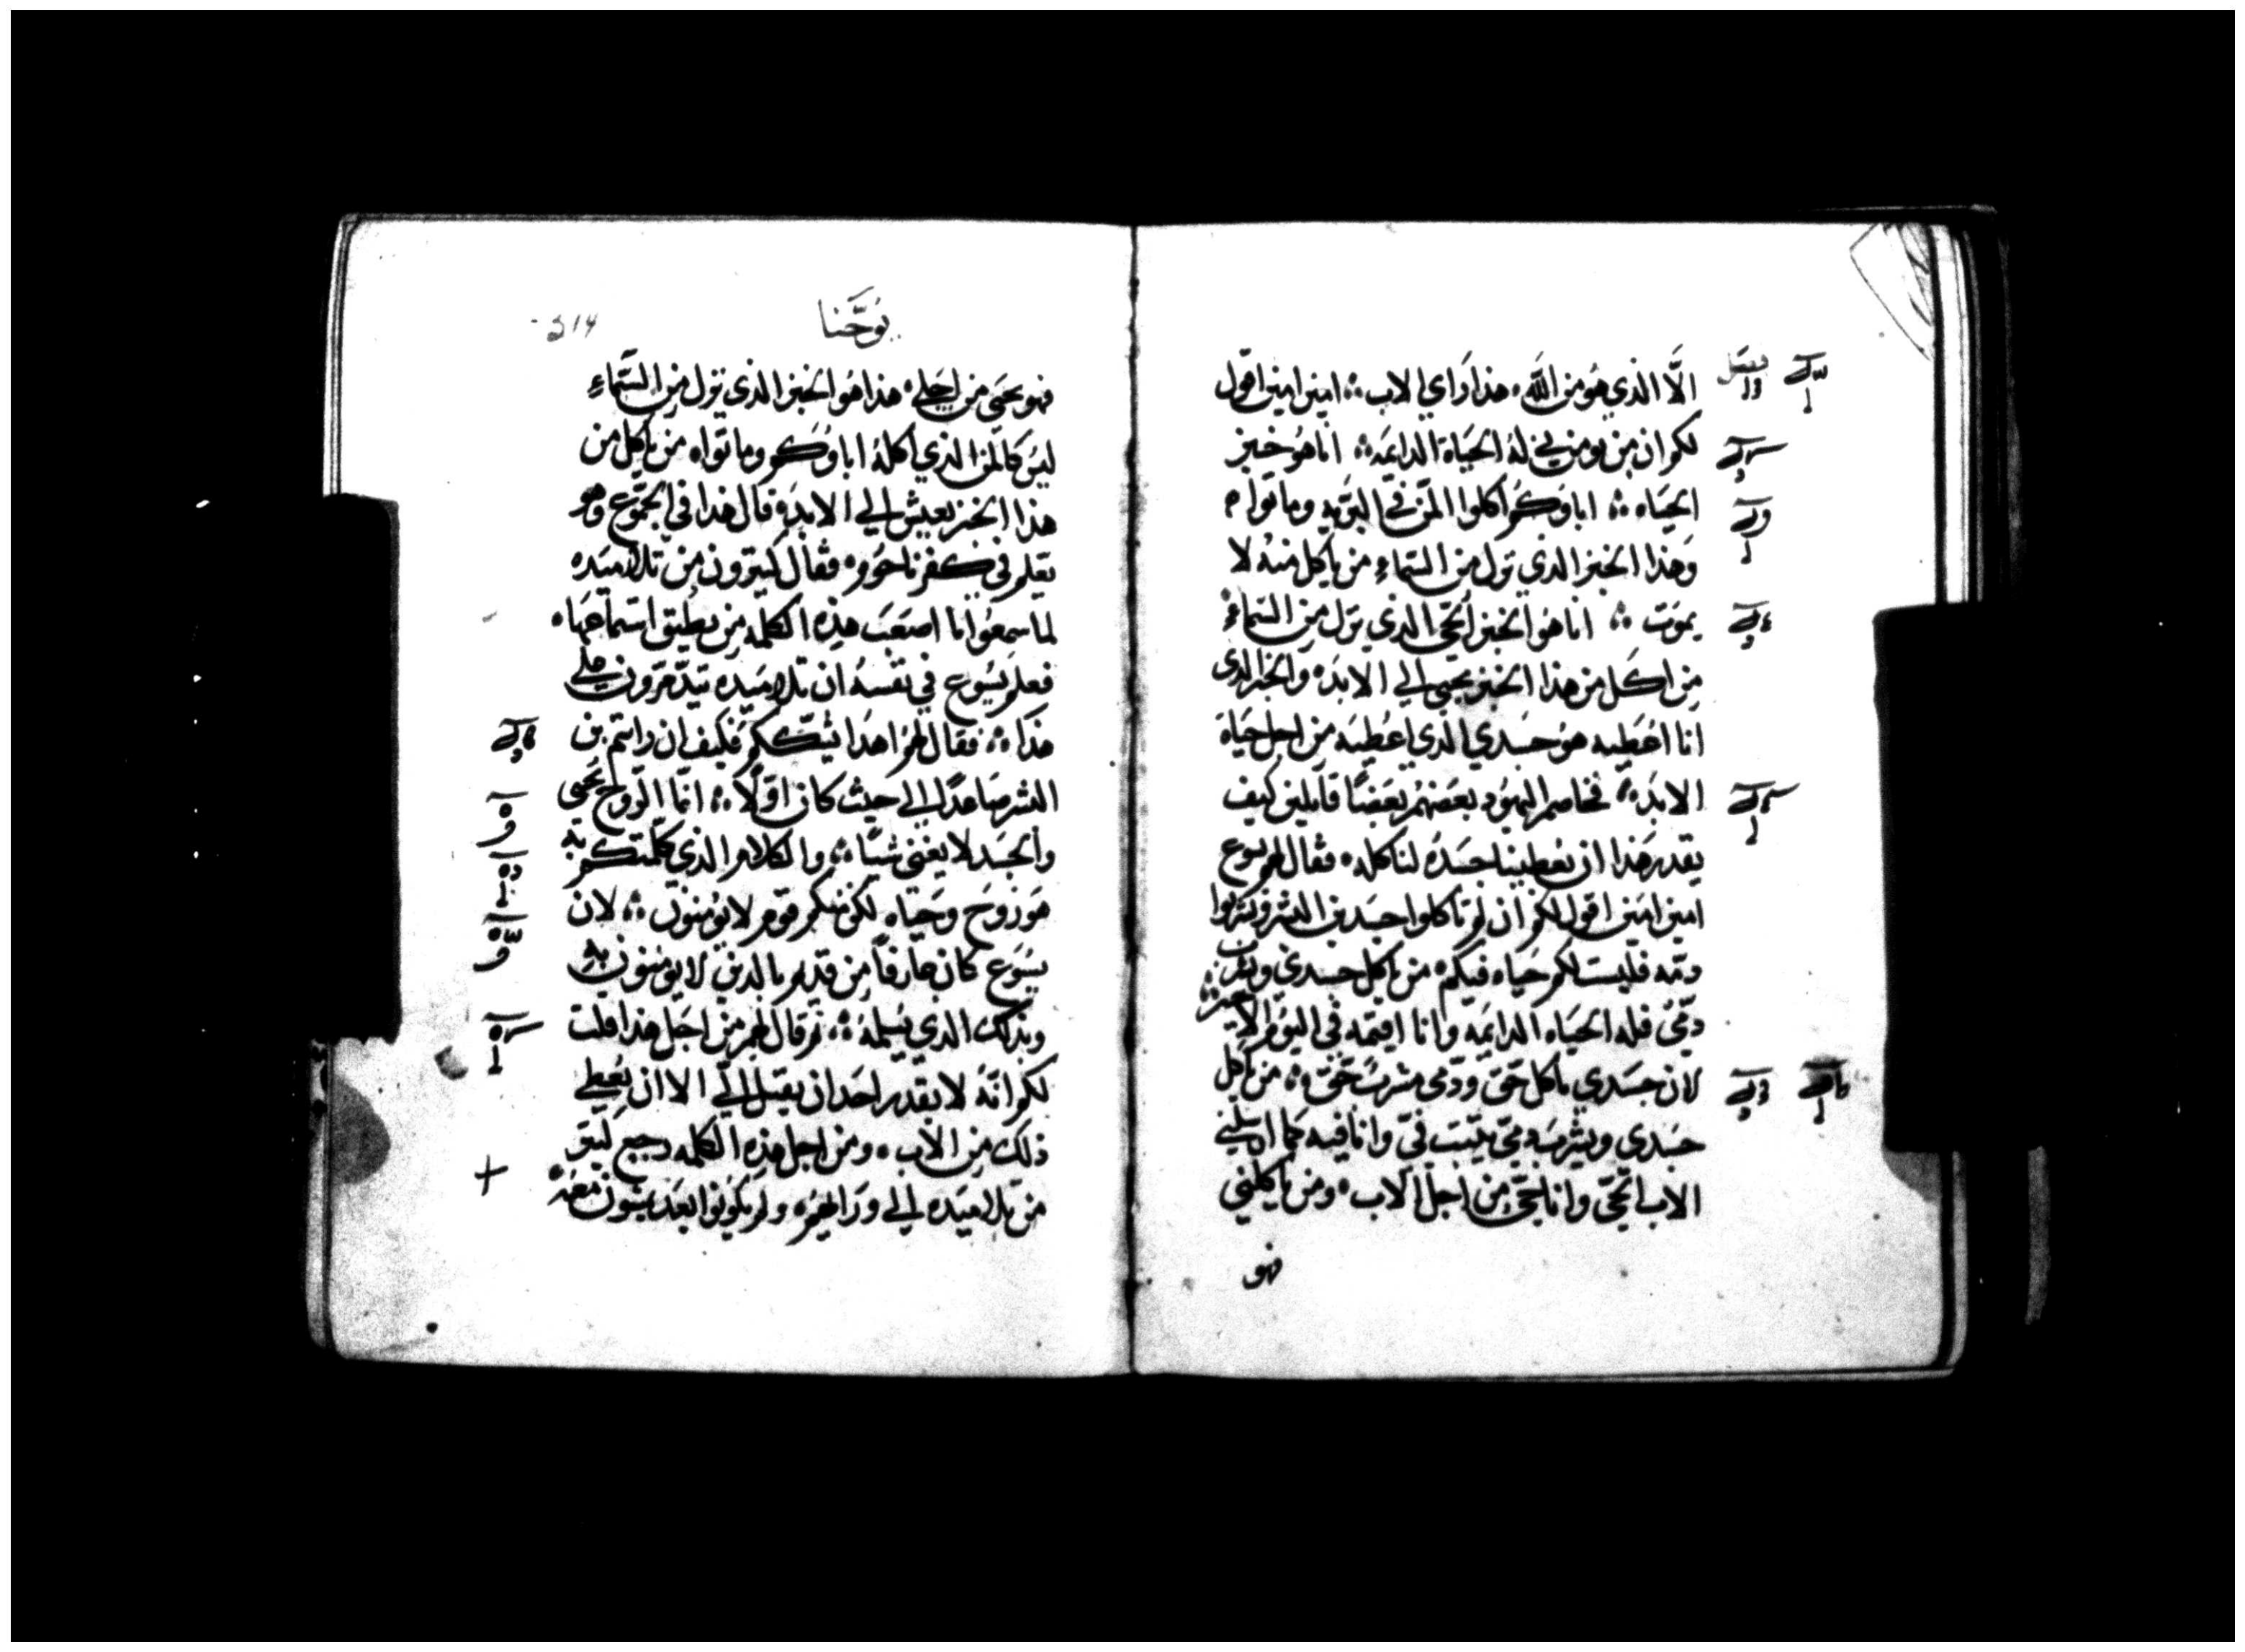 الَّا الذي هُو من اللَّه ه هذا رَاي الاب ؞ امين امين اقول
لكم ان من يومن بي لهُ الحيَاة الدايمَه ؞ انا هو خبز
الحيَاه ؞ اباوكمُ اكلوا المنّ في البَريه وماتوا ه
وَهذا الخبز الذي نزل من السَّماءِ من ياكل منهُ لا
يموَت ؞ انا هوَ الخبز الحَيّ الذي نزل مِن السَّماءِ
مِن اكَل من هذا الخبز يحيَي الي الابدَه والخبز الذي
انا اعُطيه هوُ جسَدي الذي اعُطيَه من اجل حيَاة
الابدَ ؞ فخاصم اليهوُد بعَضهُم بعَضًا قايلين كيف
يقدر هَذا ان يعُطينا جسَدُه لناكله ه فقال لهم يسوع
امين امَين اقول لكم ان لم تاكلوا جسَد بن البشر وتشربوا
دمّه فليست لكم حيَاه فيكم ه من ياكل جسدي ويشرب
دمّي فله الحيَاه الدايمَه وانا اقيمَه في اليوم الاخير ؞
لان جسَدي ماكل حَق ودمّي مشربُ حَق ؞ من ياكل
جسَدي ويشربَ دميّ يثبت فيّ وانا فيه كما ارسَلني
الاب الحَيّ وانا احَيّ من اجل الاب ه ومن ياكلني
فهو
يُوحَّنا
214
فهو يحيَي من اجَلي ه هذا هوُ الخبز الذي نزل مِن السَّماءِ
ليَس كالمنّ الذي اكلهُ اباوكُم وماتوا ه من ياكل من
هذا الخبز يعيش الي الابدَه قال هذا في المجَمع وهو
يعلم في كفرناحوم ه فقال كثيرون من تلاميَده
لما سمعَوا ما اصعَب هذِه الكلمه من يطيق استماعهَا ه
فعلم يَسُوع في نفسهُ ان تلاميَده تيدّمَرون علي
هذَا ؞ فقال لهمُ اهدَا يشككم فكيف ان رايتم بن
البشر صَاعدًا الي حيث كان اوَّلًا ؞ انمَّا الرّوح يحَيي
والجسَد لا يغني شيًا ؞ والكلام الذي كلمتكم به
هوَ رُوح وحَياه لكن منكم قوم لا يؤمنون ؞ لان
يسَوَع كان عارفاً مِن قديم بالذين لا يومنون بهِ
وبذلك الذي يُسلمهُ ؞ ثم قال لهم من اجَل هذا قلت
لكم انهُّ لا يقدر احَد ان يقبل اليّ الا ان يُعطي
ذلك من الاب ه ومن اجل هذِه الكلمه رجع كثير
من تلاميَده الي ورَايهمُ ه ولم يكوَنوا بعَد يمشوَن معَه